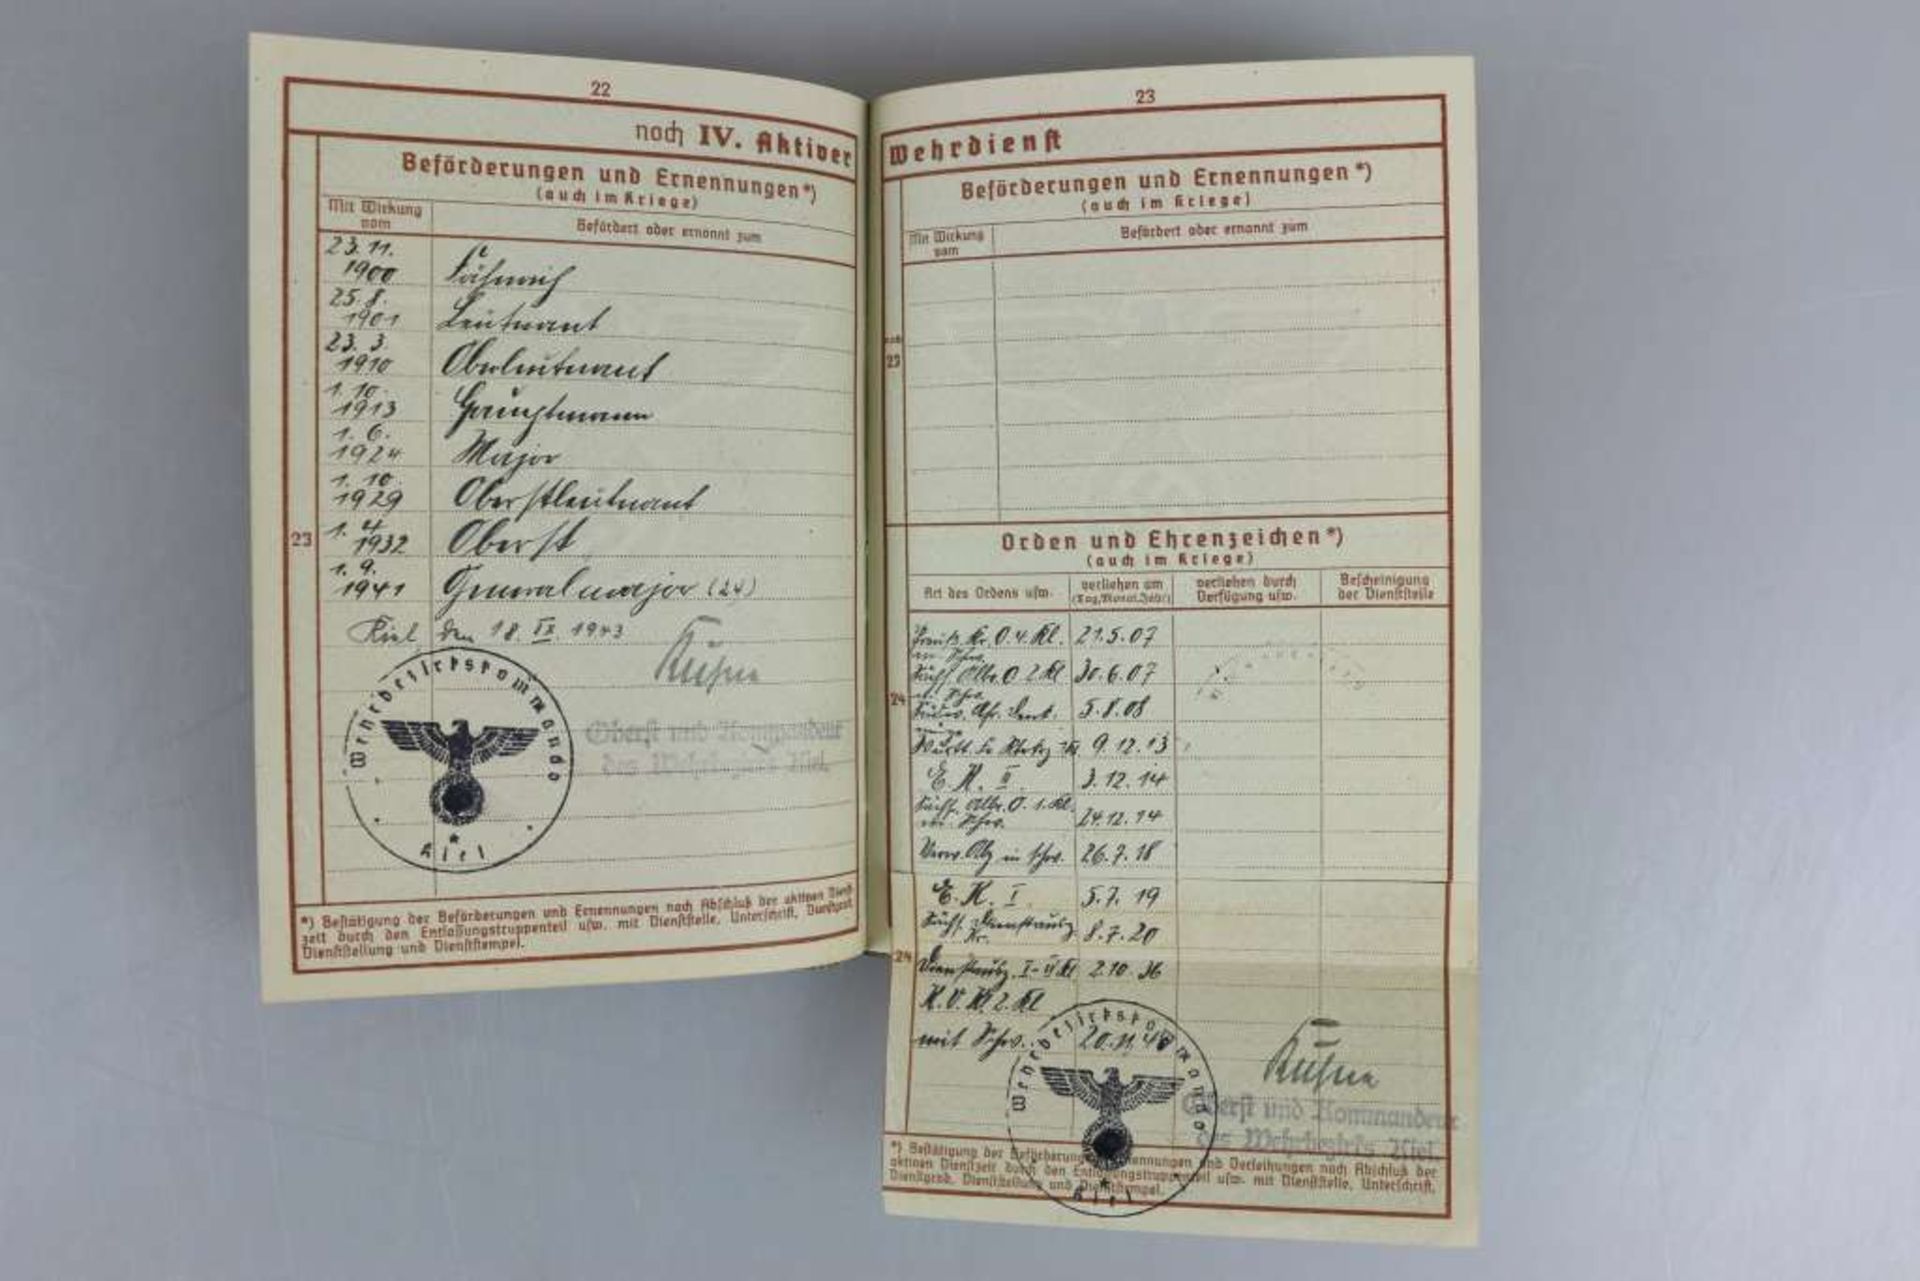 22
noch IV. Aktiver
Beförderungen und Ernennungen*)
(auch im Kriege)
Mit Wirkung
vom
Befördert oder ernannt zum
23. 11.
1900 Fähnrich
25. 8.
1901 Leutnant
23. 3.
1910 Oberleutnant
1. 10.
1913 Hauptmann
1. 6.
1924 Major
1. 10.
1929 Oberstleutnant
23
1. 4
1932 Oberst
1. 9.
1941 Generalmajor
Kiel, den 18. IX. 1943
Oberst und Kommandeur
des Wehrbezirks Kiel.
Wehrbezirkskommando
Kiel
*) Bestätigung der Beförderungen und Ernennungen nach Abschluß der aktiven Dienst-
zeit durch den Entlassungstruppenteil usw. mit Dienststelle, Unterschrift, Dienstgrad,
Dienststellung und Dienststempel.
23
Wehrdienst
Beförderungen und Ernennungen*)
(auch im Kriege)
Mit Wirkung
vom
Befördert oder ernannt zum
noch
23
Orden und Ehrenzeichen*)
(auch im Kriege)
Art des Ordens usw.
verliehen am
(Tag, Monat, Jahr)
verliehen durch
Verfügung usw.
Bescheinigung
der Dienststelle
Preuß. Kr. O. 4. Kl. 21. 5. 07
m. Schw.
Sächs. Albr. O. 2 Kl 30. 6. 07
m. Schw.
24
Südw. Afr. Denk. 5. 8. 08
9. 12. 13
E. K. II 3. 12. 14
Sächs. Albr. O. 1. Kl.
m. Schw. 24. 12. 14
Verw. Abz in schw. 26. 7. 18
E. K. I 5. 7. 19
Sächs. Dienstausz.
Kr. 8. 7. 20
24
Dienstausz. I-IV Kl 2. 10. 36
K. V. K. 2. Kl
mit Schw. 20. 11. 4
Oberst und Kommandeur
des Wehrbezirks Kiel.
Wehrbezirkskommando
Kiel
*) Bestätigung der Beförderungen, Ernennungen und Verleihungen nach Abschluß der
aktiven Dienstzeit durch den Entlassungstruppenteil usw. mit Dienststelle, Unterschrift,
Dienstgrad, Dienststellung und Dienststempel.